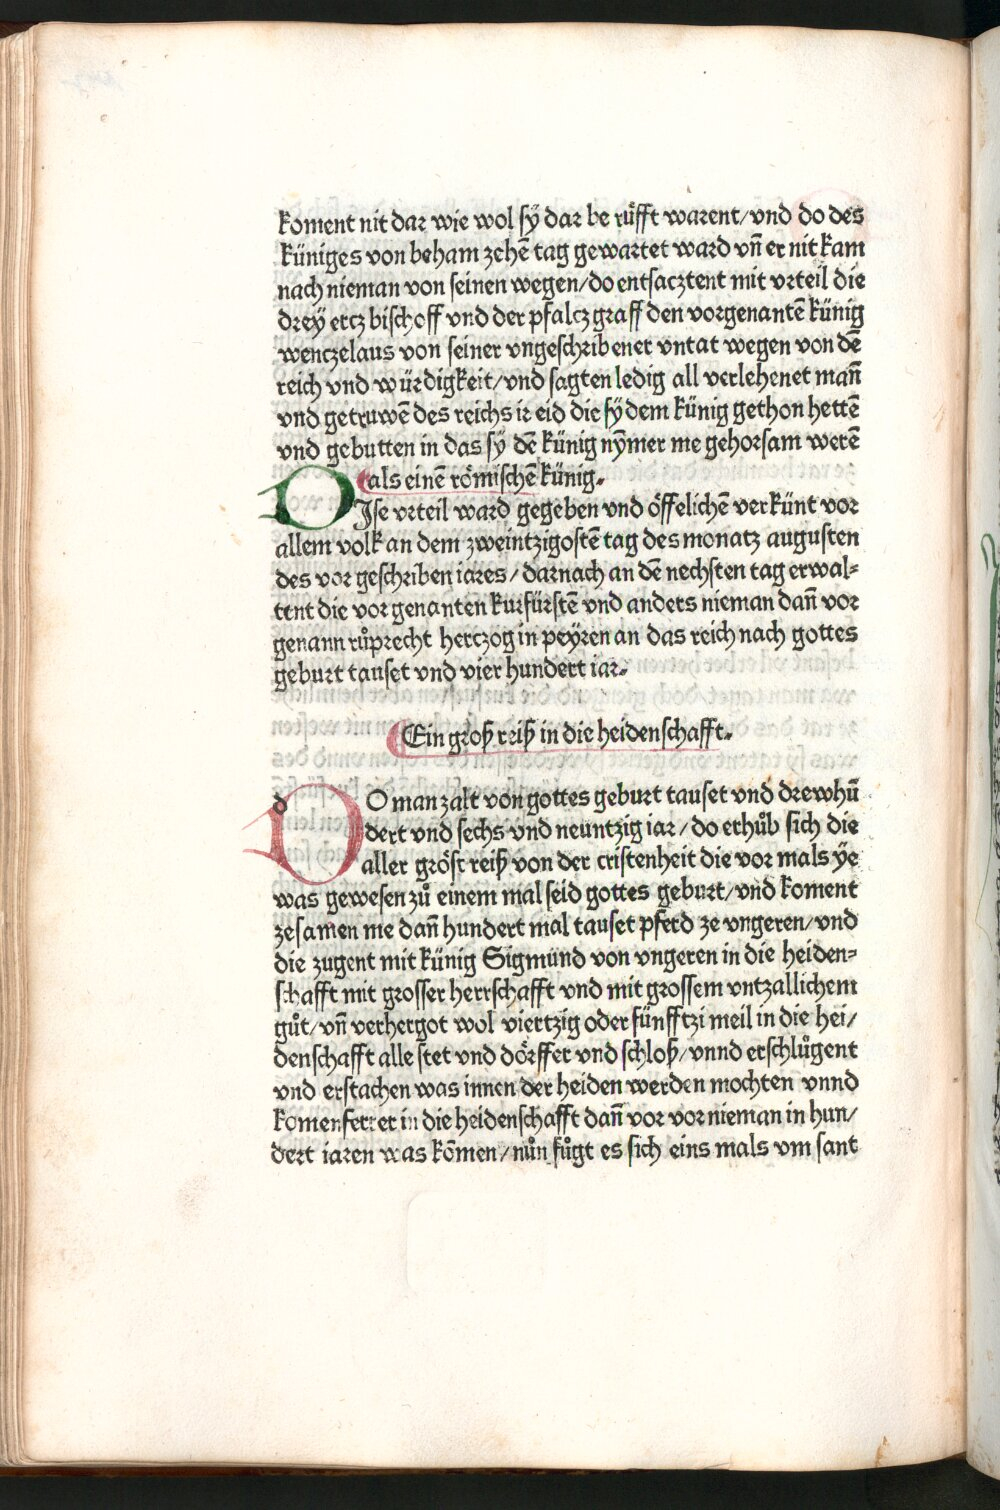 koment nit dar wie wol sÿ dar be rüfft warent/vnd do des
küniges von beham zehē tag gewartet ward vn̄ er nit kam
nach nieman von seinen wegen/do entsacztent mit vrteil die
dreÿ ertz bischoff vnd der pfalcz graff den vorgenantē künig
wenczelaus von seiner vngeschribener vntat wegen von dē
reich vnd würdigkeit/vnd sagten ledig all verlehenet man̄
vnd getruwē des reichs ir eid die sÿ dem künig gethon hettē
vnd gebutten in das sÿ dē künig nÿmer me gehorsam werē
als einē römischē künig.
DIse vrteil ward gegeben vnd öffelichē verkünt vor
allem volk an dem zweintzigostē tag des monatz augusten
des vor geschriben iares/darnach an dē nechsten tag erwal-
tent die vor genanten kurfürstē vnd anders nieman dan̄ vor
genann růprecht hertzog in peÿren an das reich nach gottes
geburt tauset vnd vier hundert iar.
Ein groß reiß in die heidenschafft.
DO man zalt von gottes geburt tauset vnd drewhū
dert vnd sechs vnd neuntzig iar/do erhůb sich die
aller gröst reiß von der cristenheit die vor mals ÿe
was gewesen zů einem mal seid gottes geburt/vnd koment
zesamen me dan̄ hundert mal tauset pferd ze vngeren/vnd
die zugent mit künig Sigmund von vngeren in die heiden-
schafft mit grosser herrschafft vnd mit grossem vntzallichem
gůt/vn̄ verhergot wol viertzig oder fünfftzi meil in die hei/
denschafft alle stet vnd dörffer vnd schloß/vnnd erschlůgent
vnd erstachen was innen der heiden werden mochten vnnd
komen ferrer in die heidenschafft dan̄ vor vor nieman in hun/
dert iaren was kōmen/nůn fůgt es sich eins mals vm sant